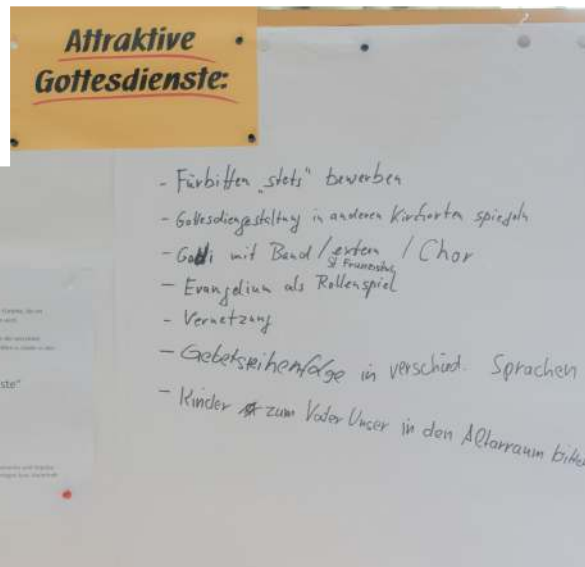 Attraktive
Gottesdienste:
- Fürbitten „stets" bewerben
- Gottesdiengestaltung in anderen Kirchorten spiegeln
- Godi mit Band / extern / Chor
St. Franziskus
- Evangelium als Rollenspiel
- Vernetzung
- Gebetsreihenfolge in verschied. Sprachen
- Kinder zum Vater Unser in den Altarraum bitten
ste"